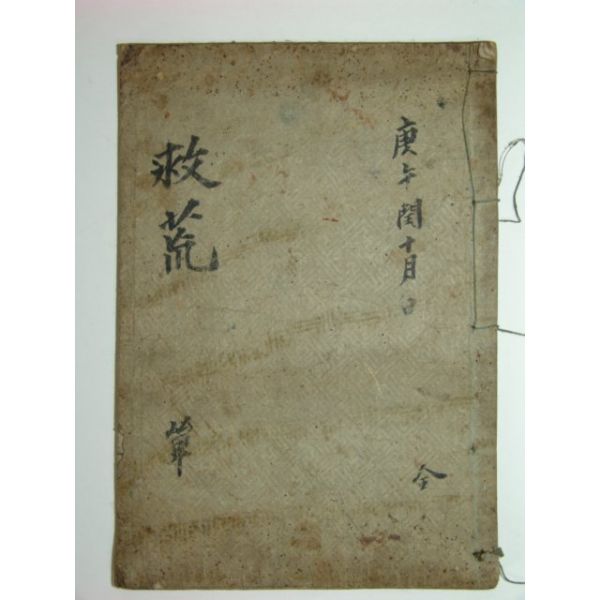 庚午閏十月日
全
救荒
單